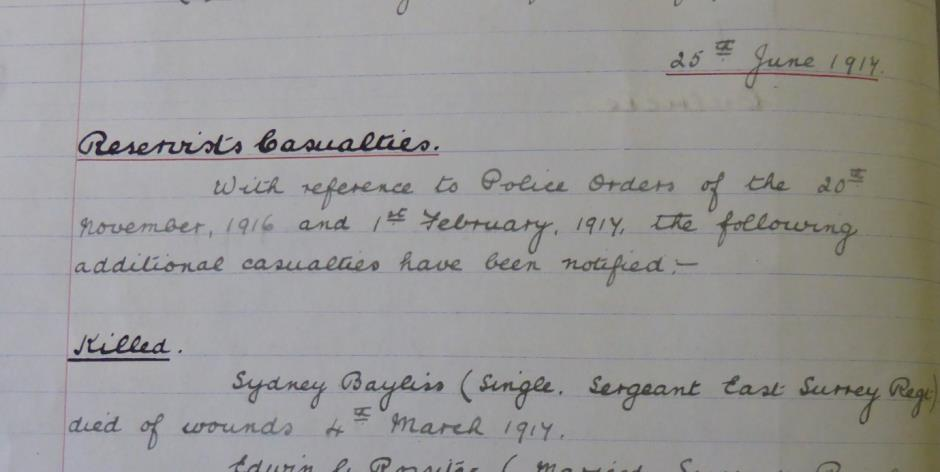 25th June 1917.
Reservists Casualties.
With reference to Police Orders of the 20th
November, 1916 and 1st February, 1917, the following
additional casualties have been notified:—
Killed.
Sydney Bayliss (Single. Sergeant East Surrey Regt)
died of wounds 4th March 1917.
Edwin